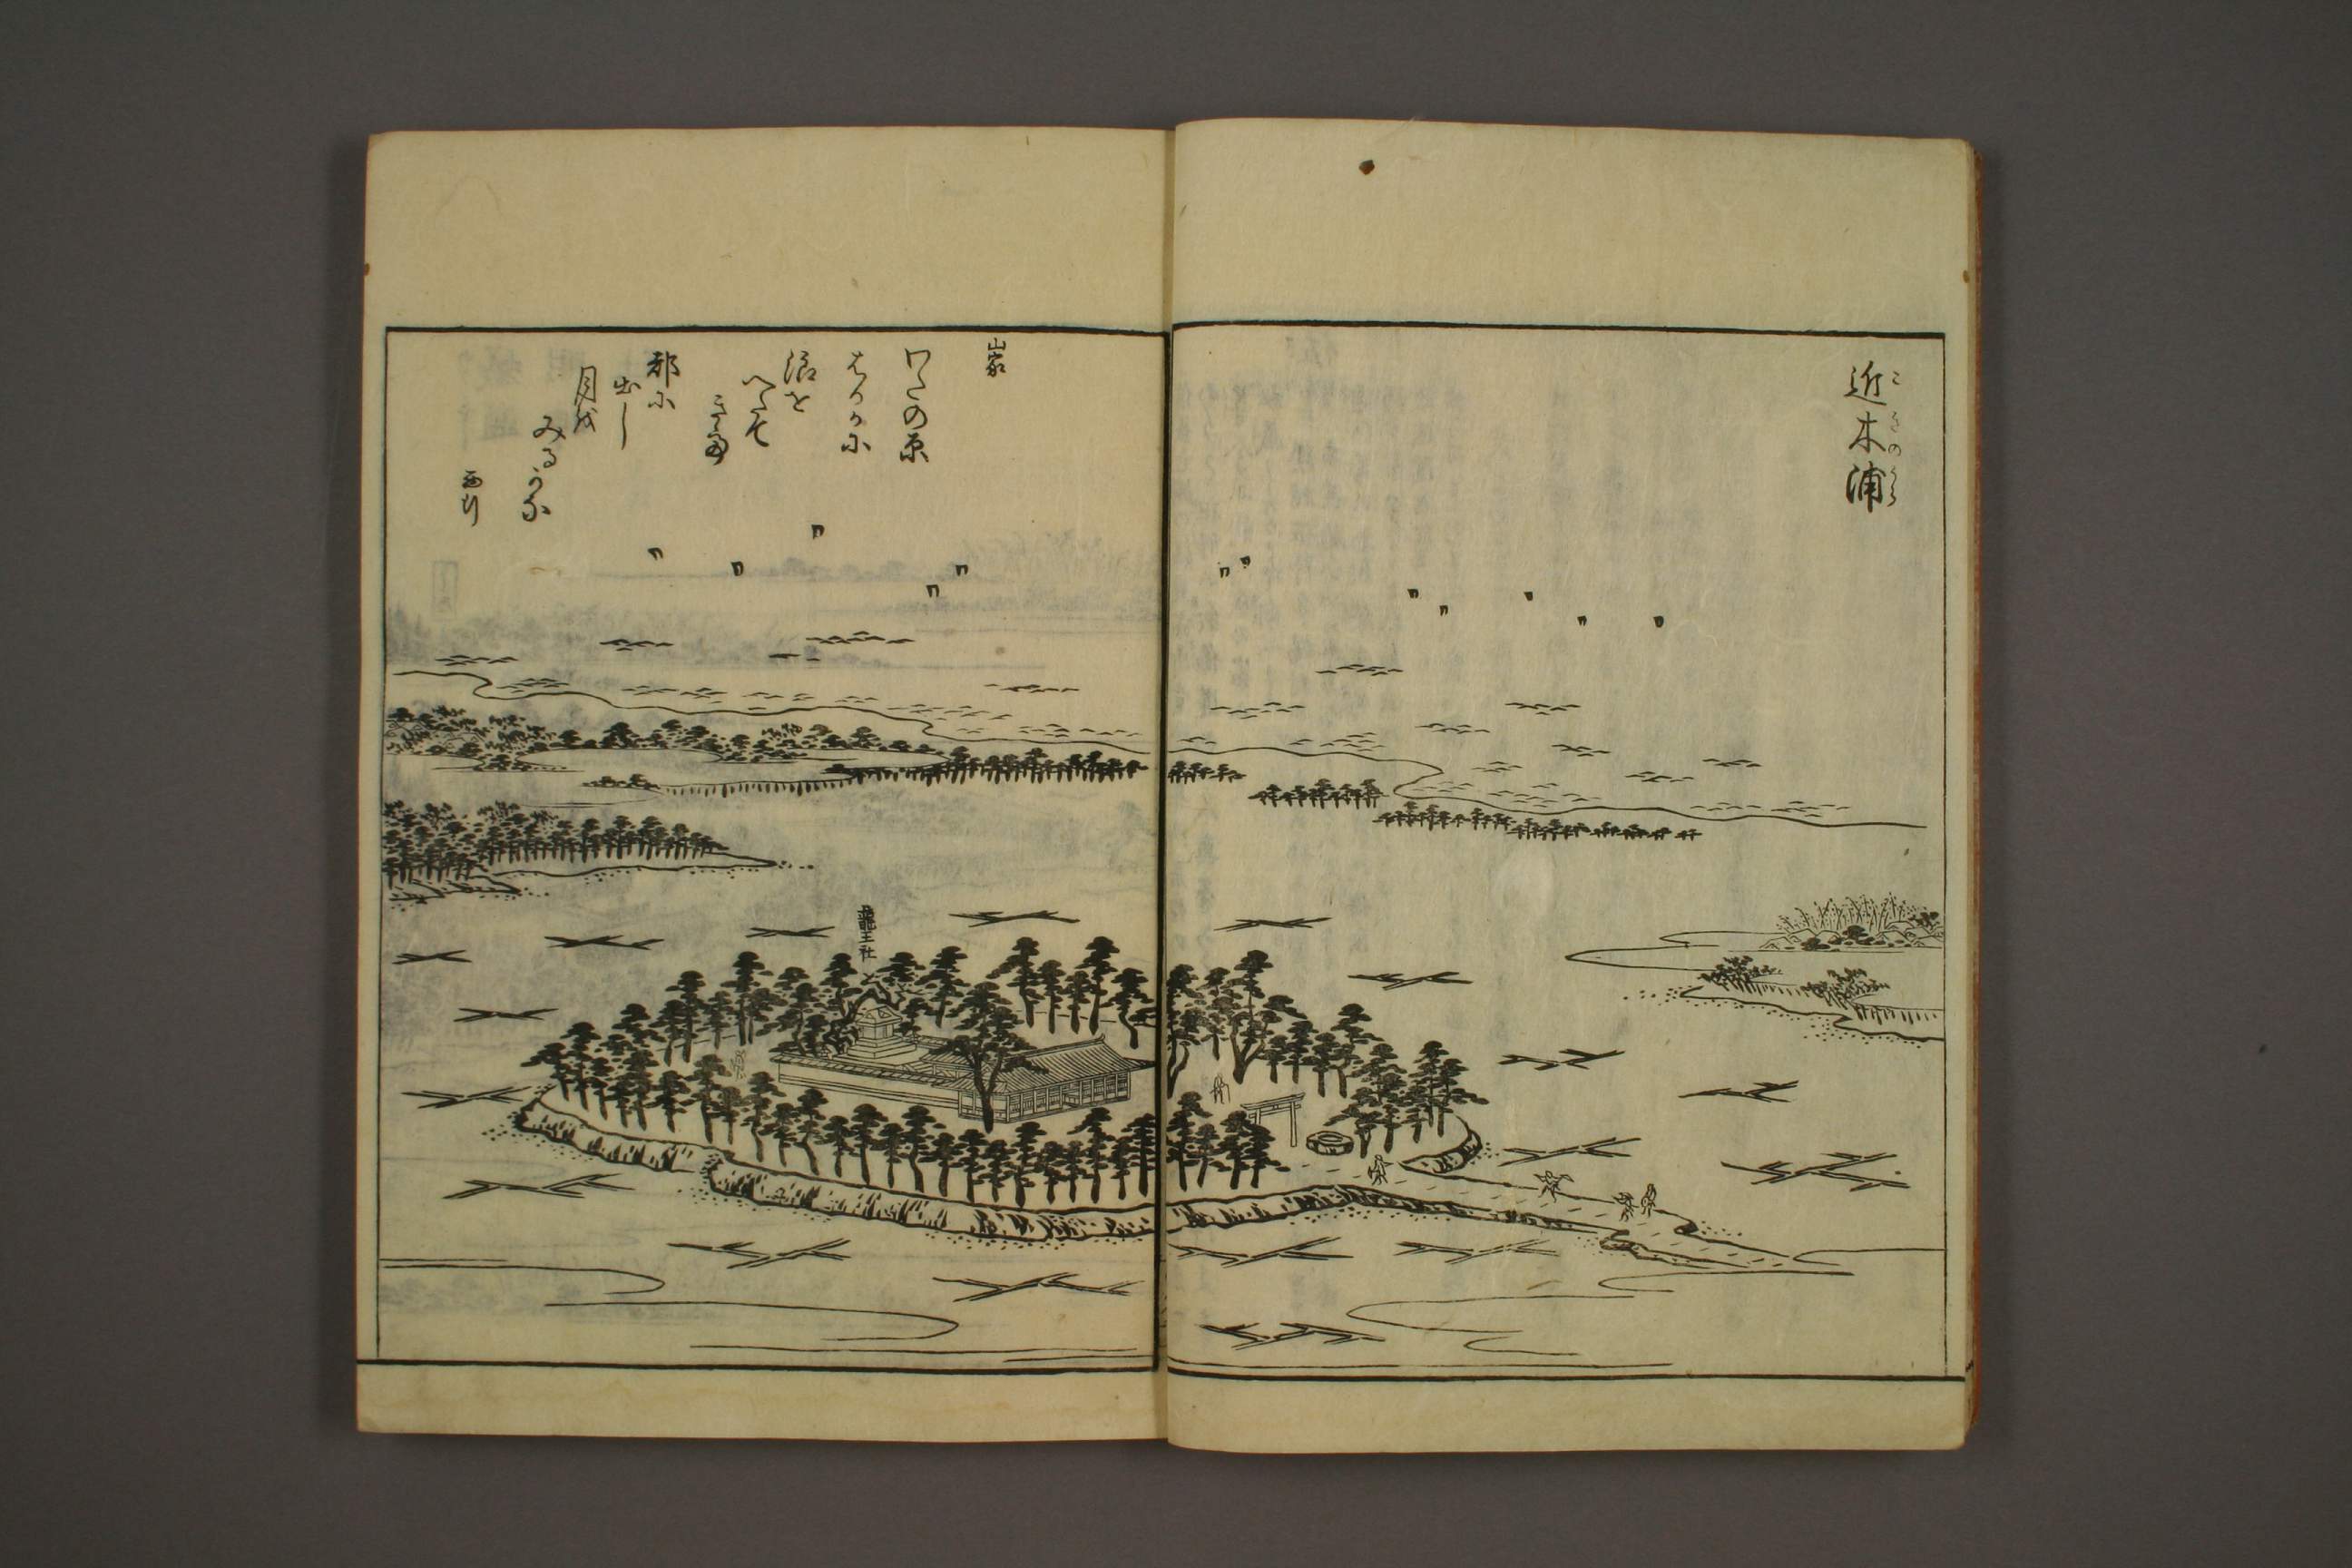 近木浦
こきのうら
山家
わたの原
はるかに
浪を
へたて
きて
都に
出し
月を
みるかな
西行
龍王社